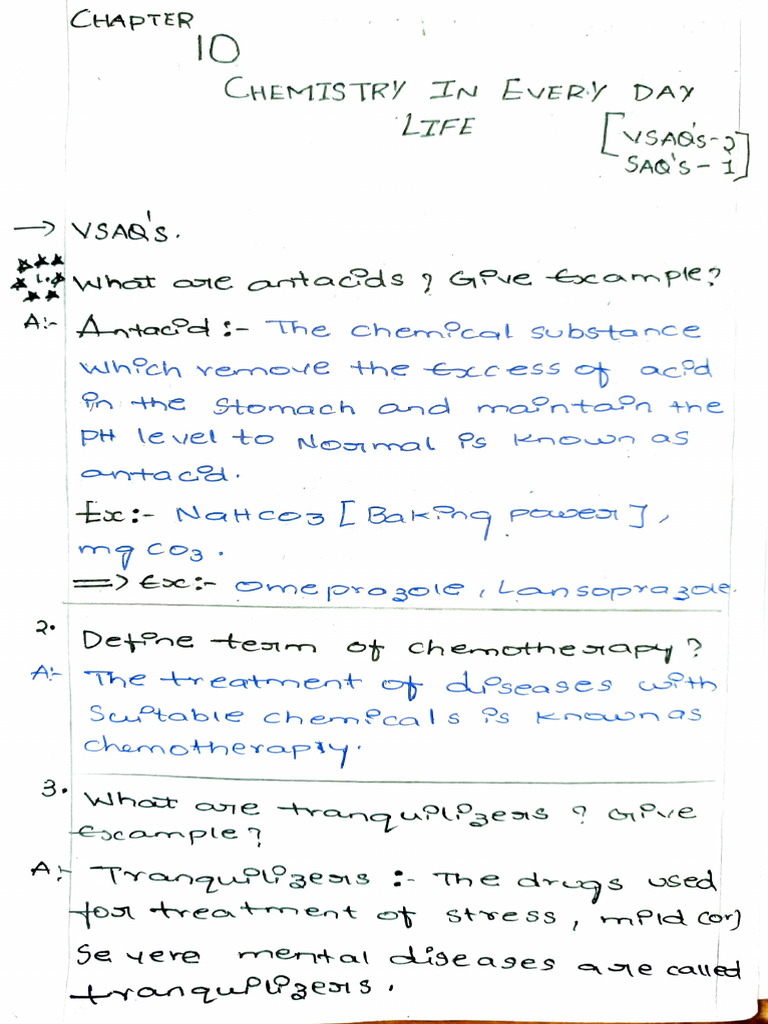 CHAPTER
10
CHEMISTRY IN EVERY DAY
LIFE
[VSAQ'S-2
SAQ'S-1]
→ VSAQ'S.
1. What are antacids? Give Example?
A:- Antacid:- The chemical substance
which remove the Excess of acid
in the stomach and maintain the
PH level to Normal is known as
antacid.
Ex:- NaHCO3 [Baking power],
mg CO3.
=> Ex:- Omeprazole, Lansoprazole.
2. Define term of chemotherapy?
A:- The treatment of diseases with
Suitable chemicals is known as
chemotherapiy.
3. What are tranquilizers? Give
Example?
A:- Tranquilizers:- The drugs used
for treatment of stress, mild (or)
Severe mental diseases are called
tranquilizers.